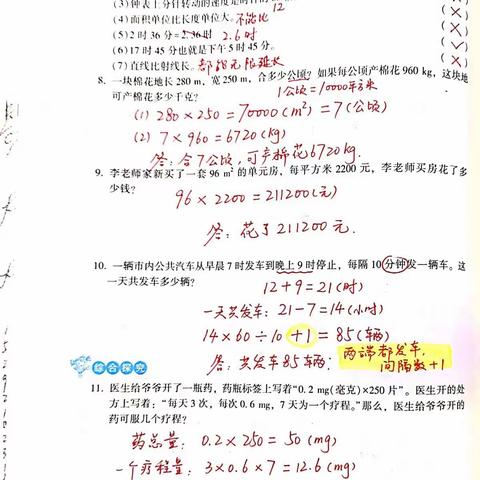 (3)钟表上分针转动的速度是时针的12
(4)面积单位比长度单位大。不能比 (×)
(5)2时36分=2.36时 2.6时 (×)
(6)17时45分也就是下午5时45分。 (✓)
(7)直线比射线长。都能无限延长 (×)
8. 一块棉花地长280 m,宽250 m,合多少公顷?如果每公顷产棉花960 kg,这块地
1公顷=10000平方米
可产棉花多少千克?
(1) 280×250=70000(m²)=7(公顷)
(2) 7×960=6720(kg)
答:合7公顷,可产棉花6720kg.
9. 李老师家新买了一套96 m²的单元房,每平方米2200元,李老师买房花了多
少钱?
96×2200=211200(元)
答:花了211200元.
10. 一辆市内公共汽车从早晨7时发车到晚上9时停止,每隔10分钟发一辆车。这
一天共发车多少辆?
12+9=21(时)
一天共发车:21-7=14(小时)
14×60÷10+1=85(辆)
答:共发车85辆.
两端都发车,
间隔数+1
综合探究
11. 医生给爷爷开了一瓶药,药瓶标签上写着“0.2 mg(毫克)×250片”。医生开的处
方上写着:“每天3次,每次0.6 mg,7天为一个疗程。”那么,医生给爷爷开的
药可服几个疗程?
药总量:0.2×250=50(mg)
一个疗程量:3×0.6×7=12.6(mg)